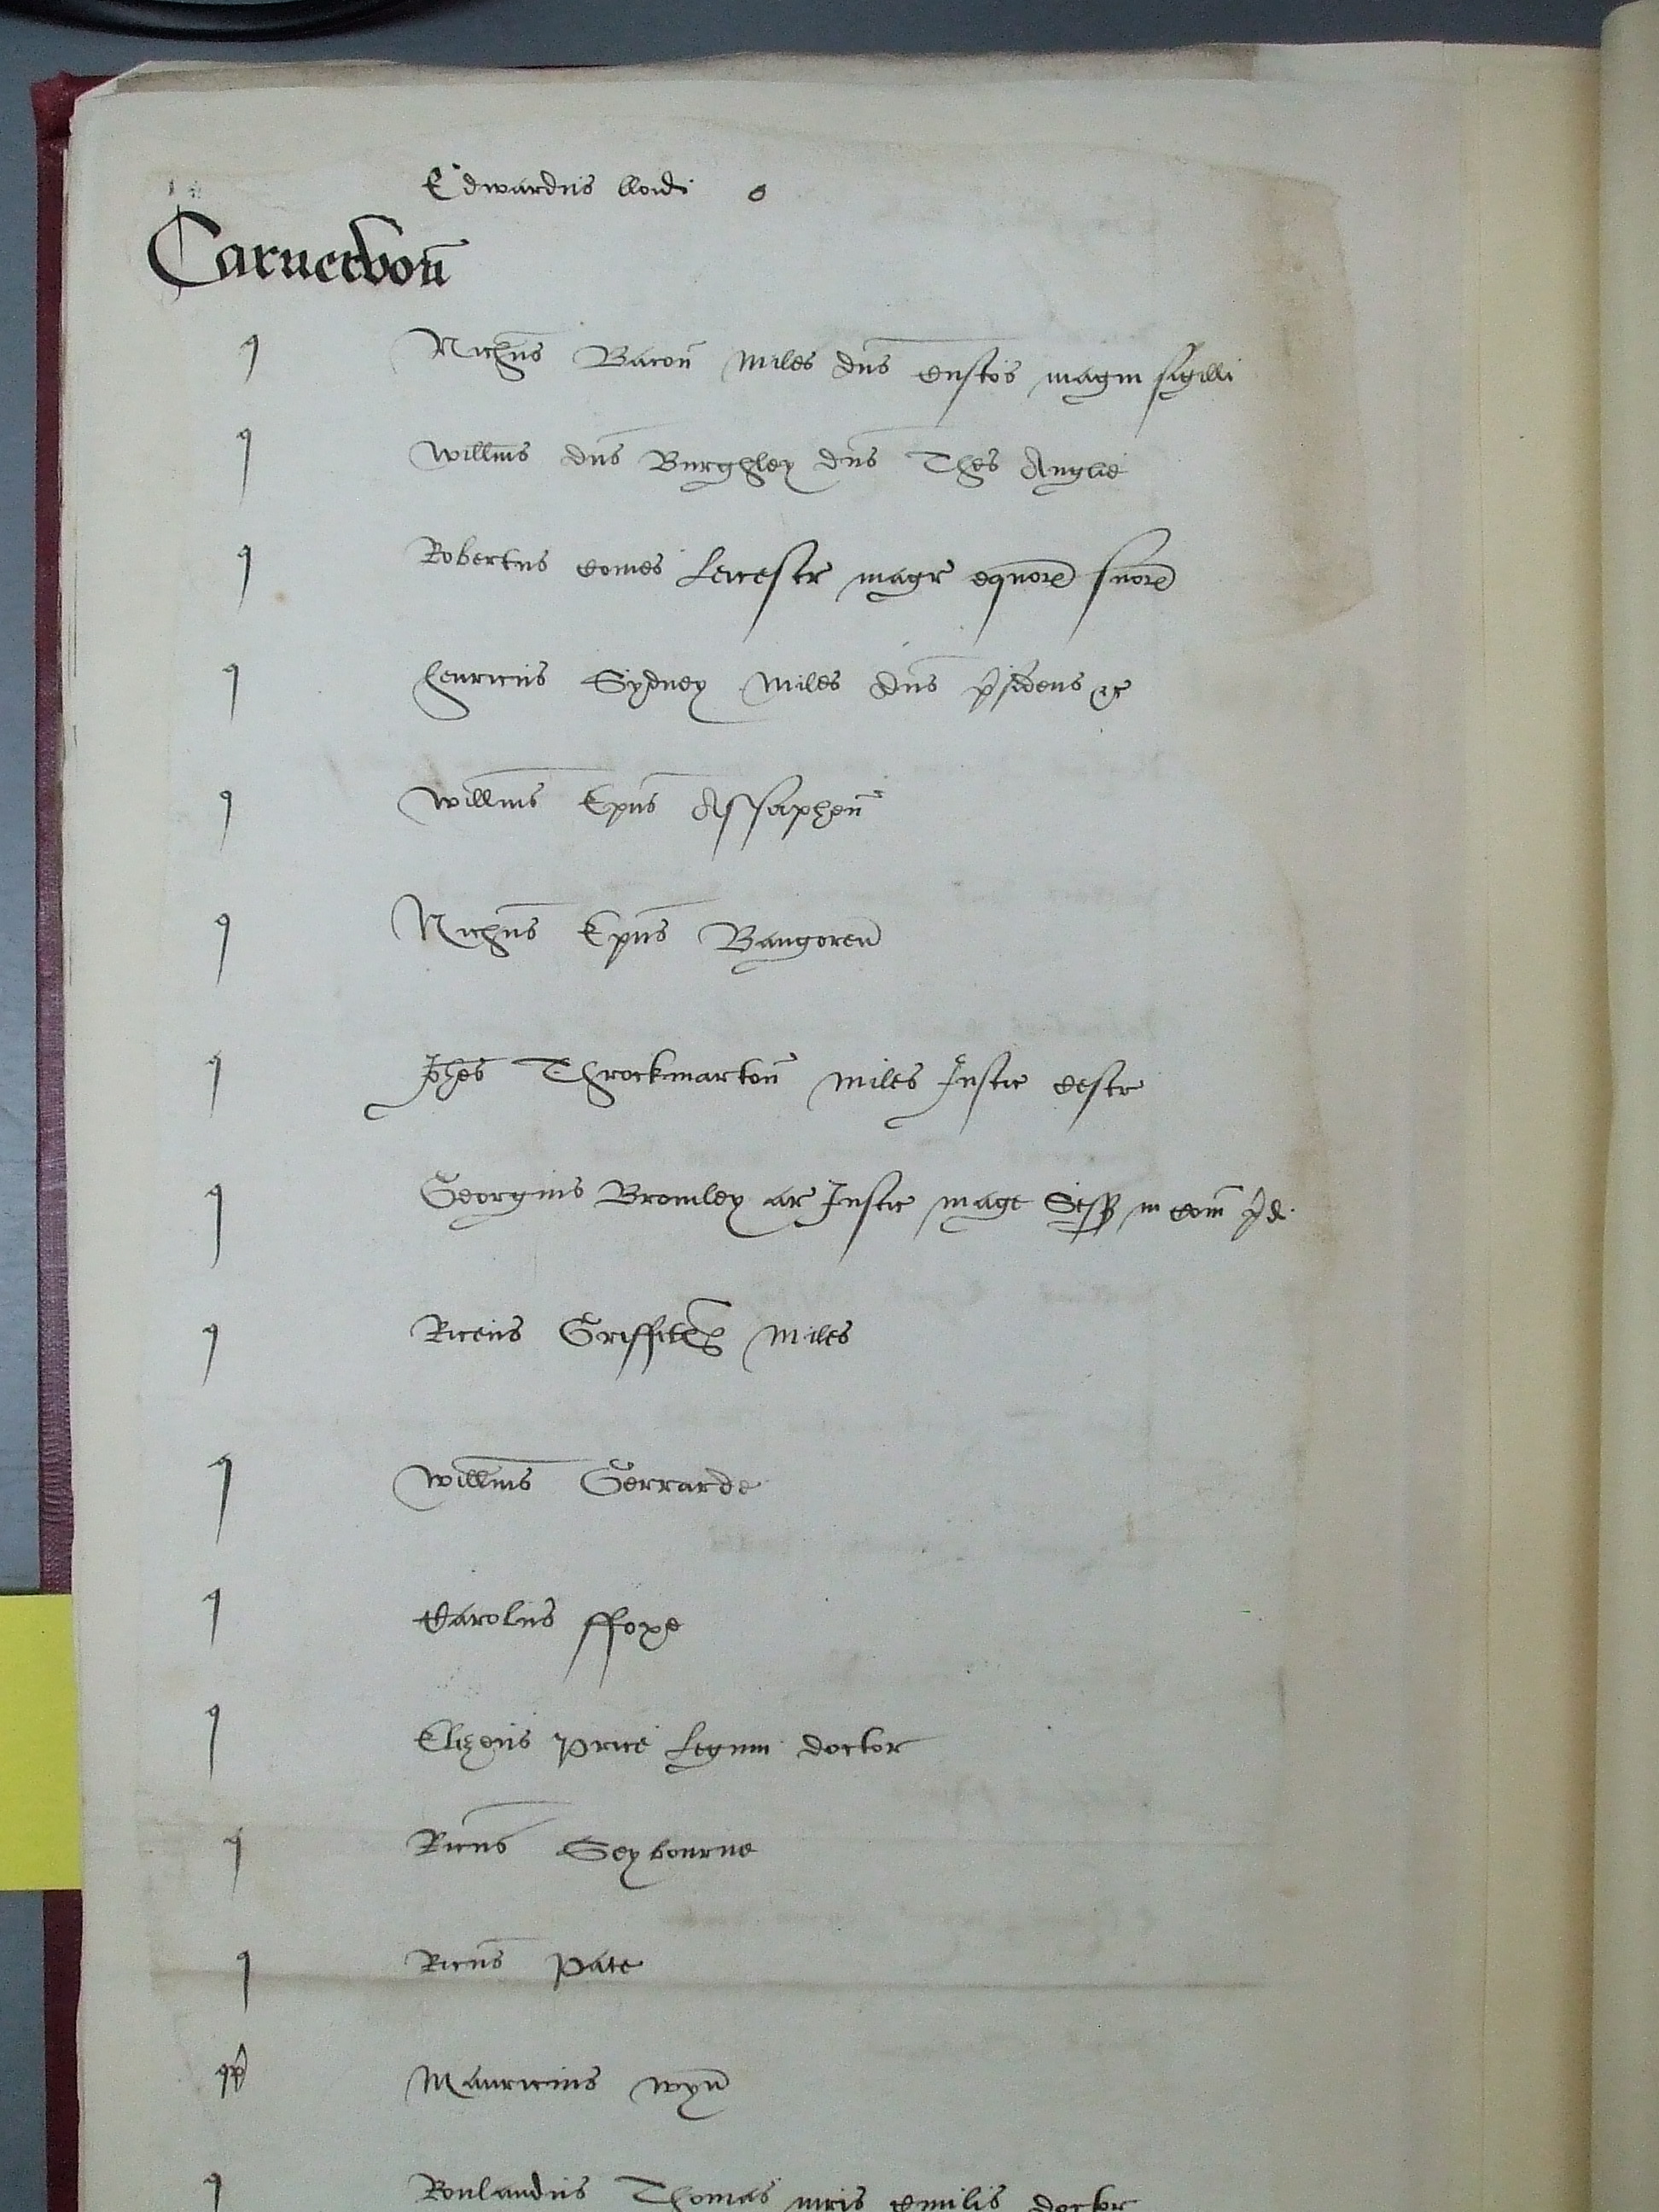 Edwardus lloid o
Carnervon
q Nichus Bacon Miles dns Custos magni sigilli
q Willms dns Burghley dns Thes Anglie
q Robertus Comes Leicestr magr equor suor
q Henricus Sydney Miles dns psidens &c
q Willms Epus Assaphen
q Nichus Epus Bangoren
q Johes Throckmarton Miles Justic Cestr
q Georgius Bromley ar Justic mag Sess in Com pd
q Riceus Griffith Miles
q Willms Gerrarde
q Carolus ffoxe
q Elizeus Price Legum doctor
q Ricus Seybourne
q Ricus Pate
Mauricius Wyn
q Roulandus Thomas iuris Civilis doctor